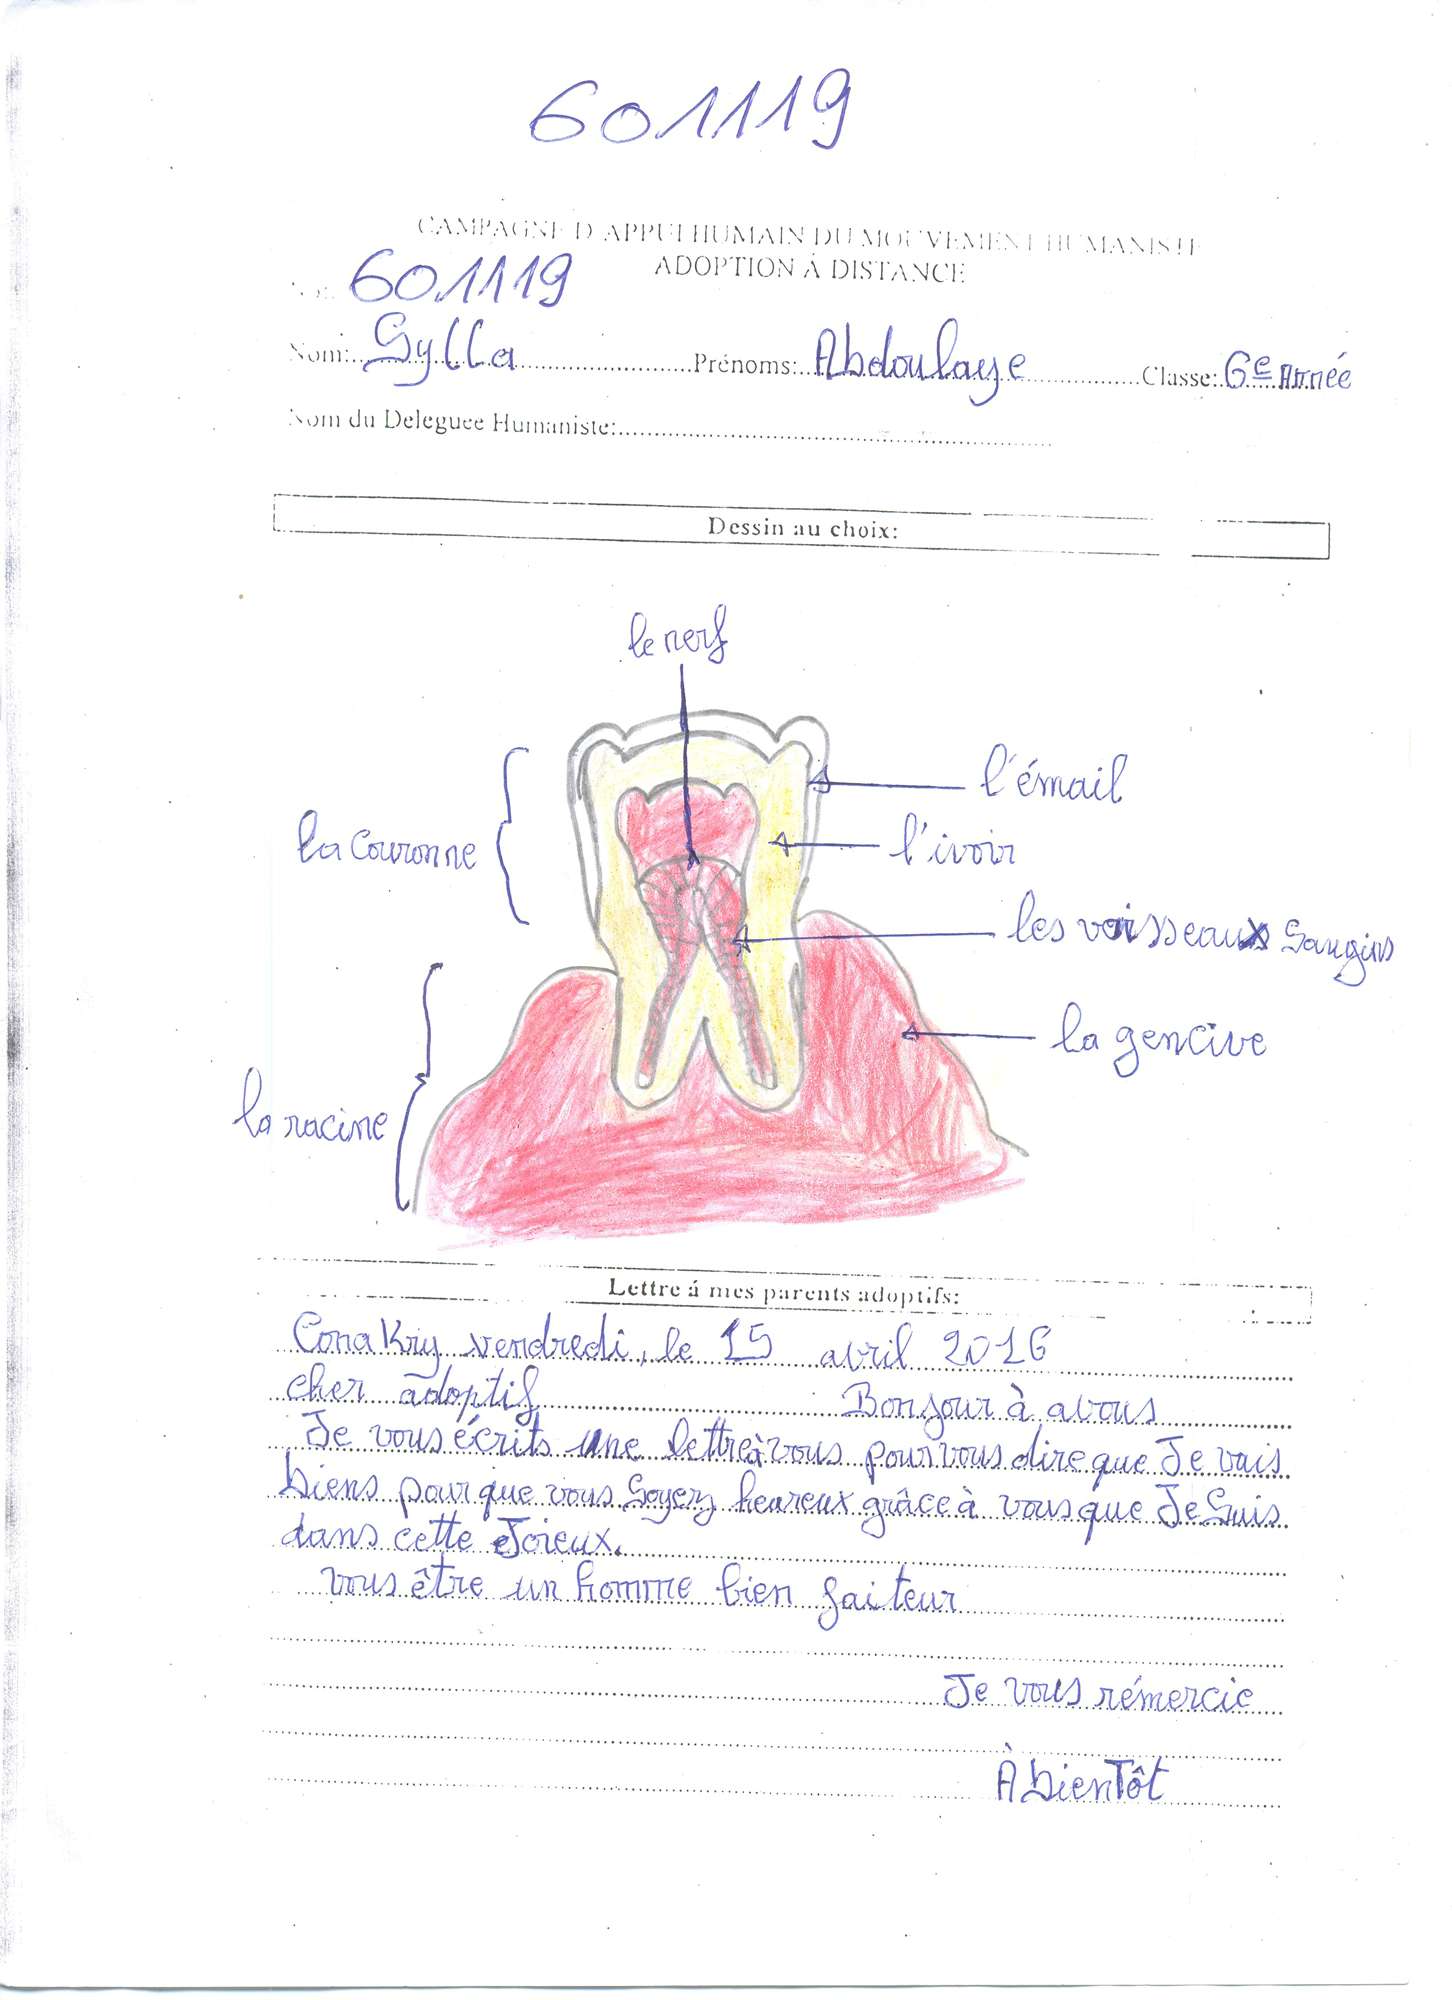 601119
CAMPAGNE D'APPUI HUMAIN DU MOUVEMENT HUMANISTE
ADOPTION À DISTANCE
601119
Nom: Sylla Prénoms: Abdoulaye Classe: 6e Année
Nom du Deleguee Humaniste:
Dessin au choix:
le nerf
l'émail
la couronne
l'ivoir
les vaisseaux Sangins
la gencive
la racine
Lettre á mes parents adoptifs:
Conakry vendredi, le 15 avril 2016
cher adoptif Bonjour à avous
Je vous écrits une lettre à vous pour vous dire que Je vais
biens pour que vous Soyez heureux grâce à vous que Je Suis
dans cette Joieux.
vous être un homme bien faiteur
Je vous rémercie
À bientôt